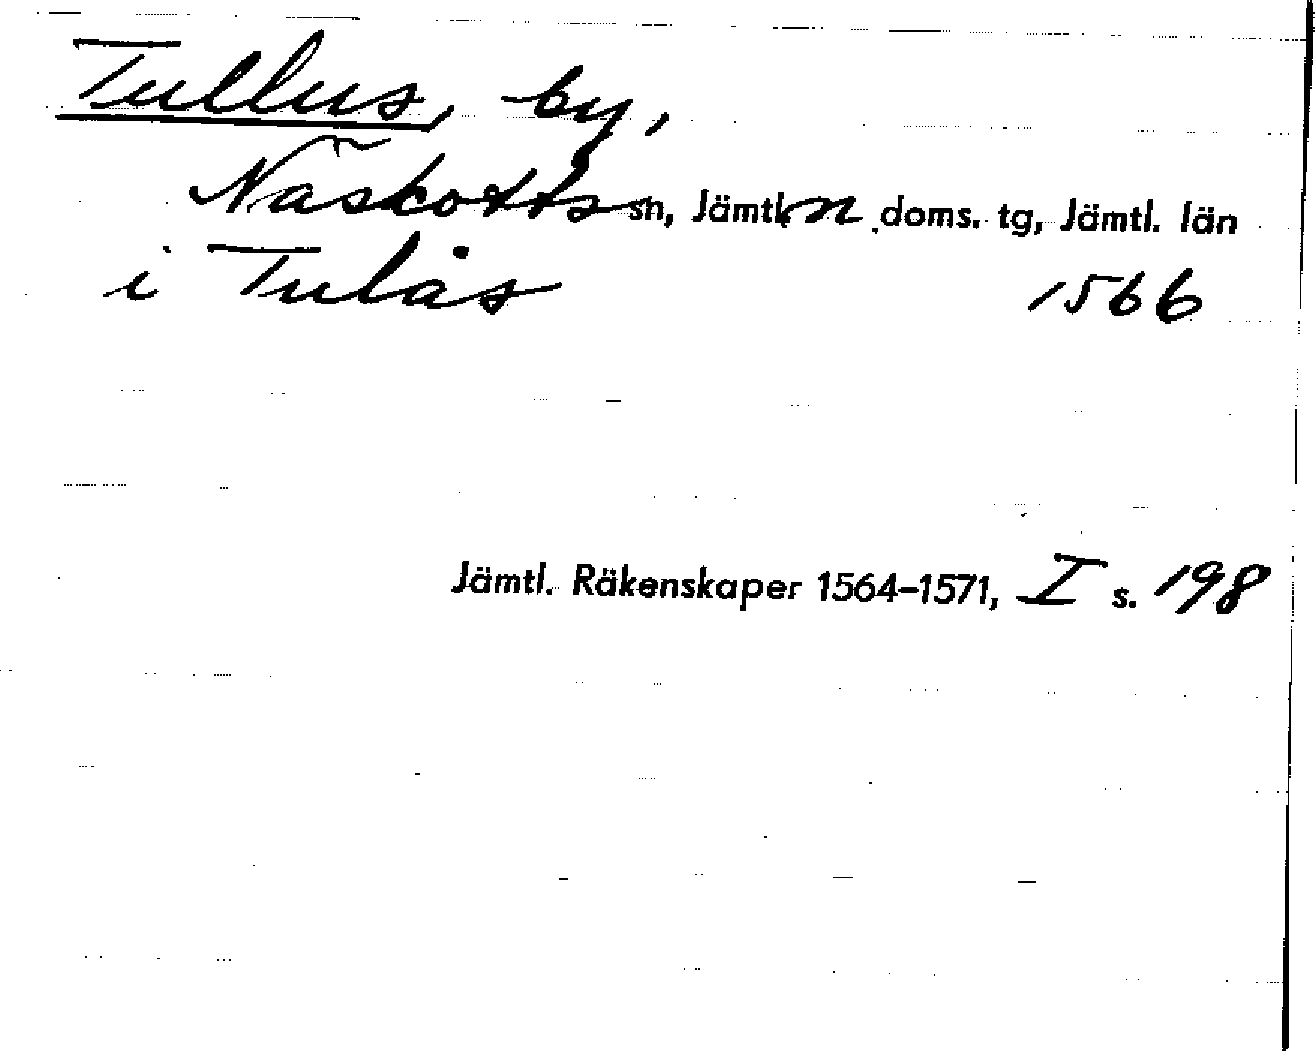 Tullus, by,
Näskotts sn, Jämtl. n doms. tg, Jämtl. län
i Tulås 1566
Jämtl. Räkenskaper 1564–1571, I s. 198